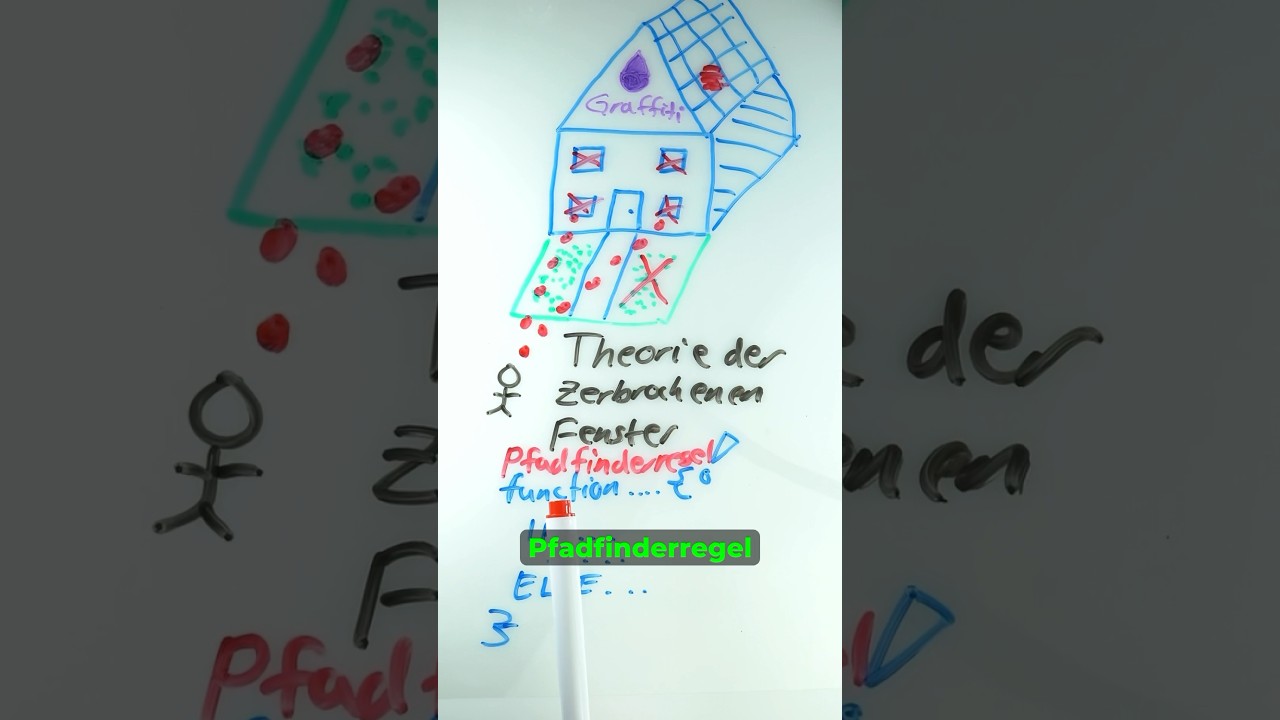 Graffiti
Theorie der
zerbrochenen
Fenster
Pfadfinderregel
function .... {
Pfadfinderregel
ELSE...
}